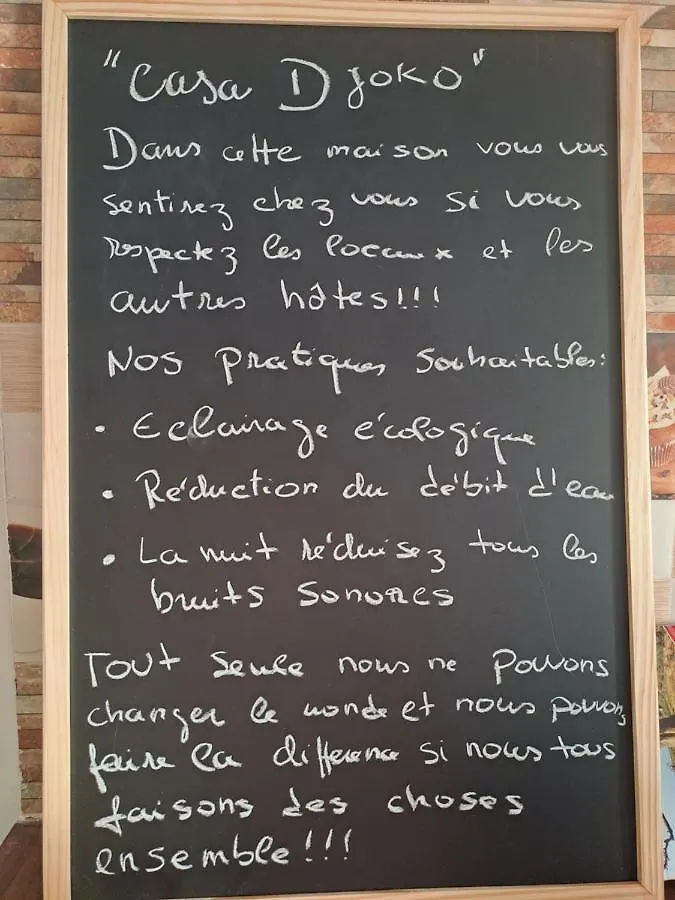 "Casa Djoko"
Dans cette maison vous vous
sentirez chez vous si vous
respectez les locaux et les
autres hôtes!!!
Nos pratiques souhaitables:
• Eclairage écologique
• Réduction du débit d'eau
• La nuit réduisez tous les
bruits sonores
Tout seule nous ne pouvons
changer le monde et nous pouvons
faire la difference si nous tous
faisons des choses
ensemble!!!